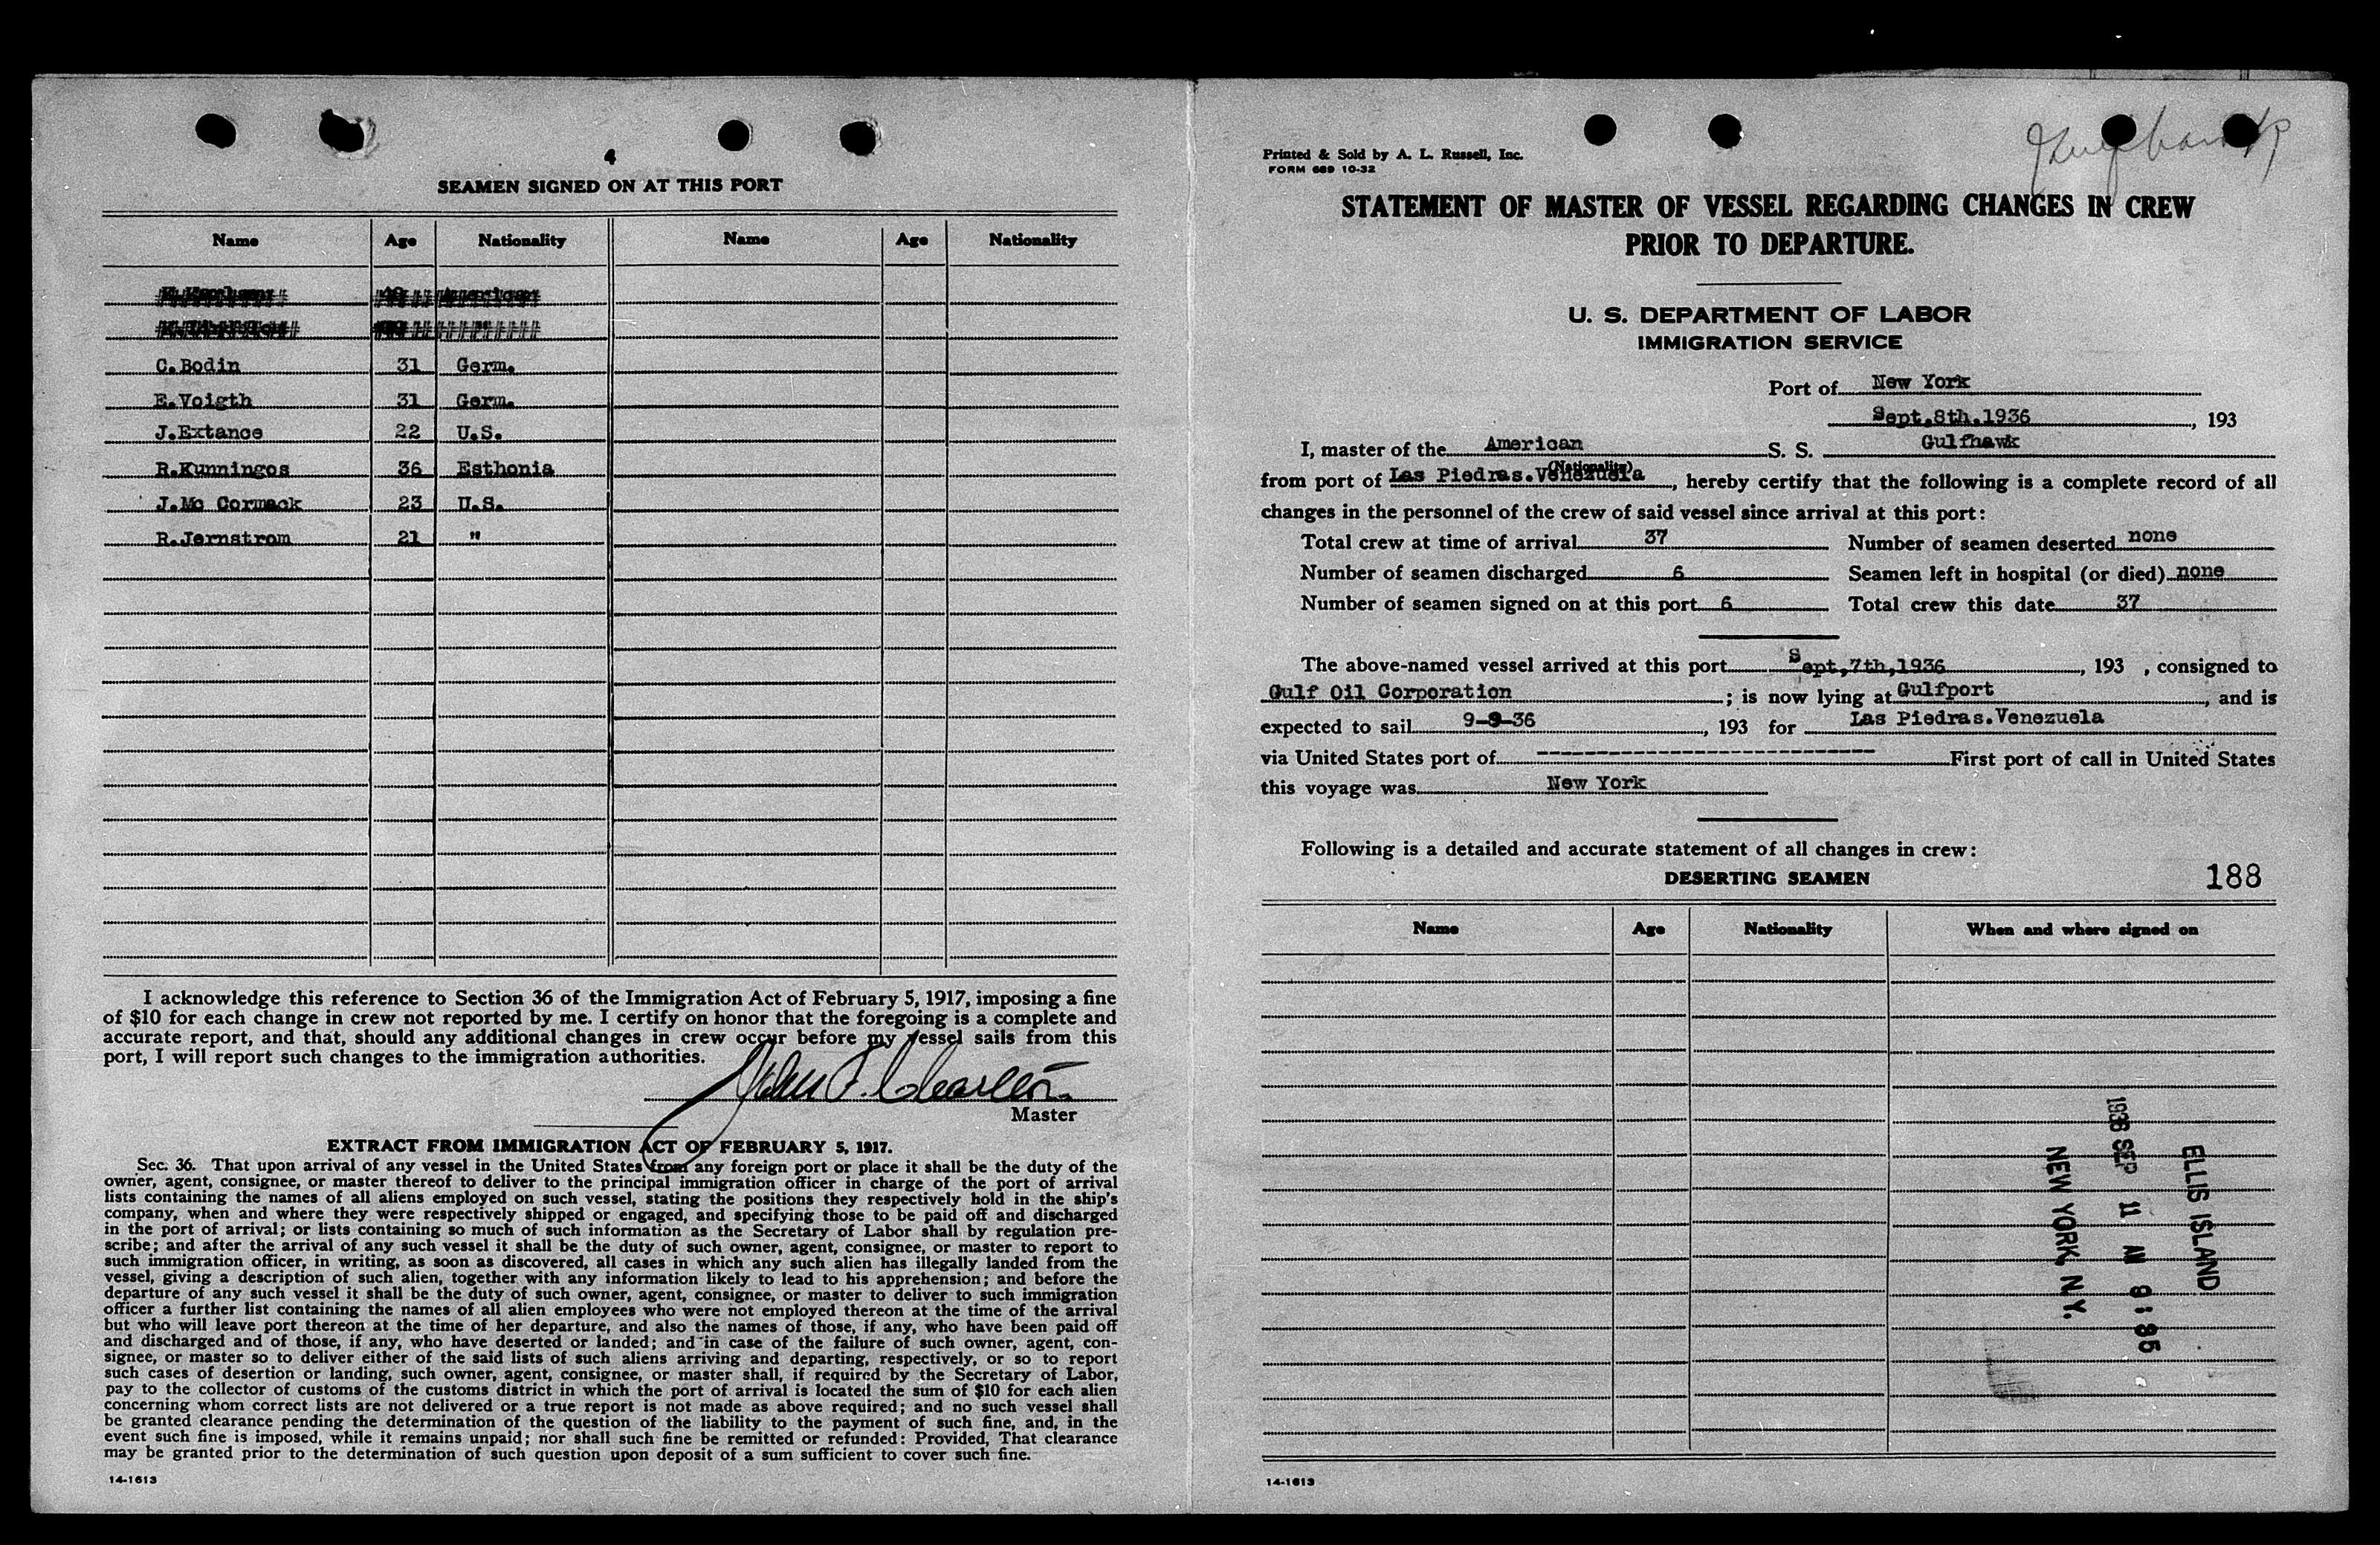 4
SEAMEN SIGNED ON AT THIS PORT
Name Age Nationality Name Age Nationality
American
C.Bodin 31 Germ.
E.Voigth 31 Germ.
J.Extance 22 U.S.
R.Kunningos 36 Esthonia
J.Mc Cormack 23 U.S.
R.Jernstrom 21 "
I acknowledge this reference to Section 36 of the Immigration Act of February 5, 1917, imposing a fine
of $10 for each change in crew not reported by me. I certify on honor that the foregoing is a complete and
accurate report, and that, should any additional changes in crew occur before my vessel sails from this
port, I will report such changes to the immigration authorities.
Master
EXTRACT FROM IMMIGRATION ACT OF FEBRUARY 5, 1917.
Sec. 36. That upon arrival of any vessel in the United States from any foreign port or place it shall be the duty of the
owner, agent, consignee, or master thereof to deliver to the principal immigration officer in charge of the port of arrival
lists containing the names of all aliens employed on such vessel, stating the positions they respectively hold in the ship's
company, when and where they were respectively shipped or engaged, and specifying those to be paid off and discharged
in the port of arrival; or lists containing so much of such information as the Secretary of Labor shall by regulation pre-
scribe; and after the arrival of any such vessel it shall be the duty of such owner, agent, consignee, or master to report to
such immigration officer, in writing, as soon as discovered, all cases in which any such alien has illegally landed from the
vessel, giving a description of such alien, together with any information likely to lead to his apprehension; and before the
departure of any such vessel it shall be the duty of such owner, agent, consignee, or master to deliver to such immigration
officer a further list containing the names of all alien employees who were not employed thereon at the time of the arrival
but who will leave port thereon at the time of her departure, and also the names of those, if any, who have been paid off
and discharged and of those, if any, who have deserted or landed; and in case of the failure of such owner, agent, con-
signee, or master so to deliver either of the said lists of such aliens arriving and departing, respectively, or so to report
such cases of desertion or landing, such owner, agent, consignee, or master shall, if required by the Secretary of Labor,
pay to the collector of customs of the customs district in which the port of arrival is located the sum of $10 for each alien
concerning whom correct lists are not delivered or a true report is not made as above required; and no such vessel shall
be granted clearance pending the determination of the question of the liability to the payment of such fine, and, in the
event such fine is imposed, while it remains unpaid; nor shall such fine be remitted or refunded: Provided, That clearance
may be granted prior to the determination of such question upon deposit of a sum sufficient to cover such fine.
14-1613
Gulfhawk
Printed & Sold by A. L. Russell, Inc.
FORM 689 10-32
STATEMENT OF MASTER OF VESSEL REGARDING CHANGES IN CREW
PRIOR TO DEPARTURE.
U. S. DEPARTMENT OF LABOR
IMMIGRATION SERVICE
Port of New York
Sept.8th.1936, 193
I, master of the American S. S. Gulfhawk
(Nationality)
from port of Las Piedras.Venezuela, hereby certify that the following is a complete record of all
changes in the personnel of the crew of said vessel since arrival at this port:
Total crew at time of arrival 37 Number of seamen deserted none
Number of seamen discharged 6 Seamen left in hospital (or died) none
Number of seamen signed on at this port 6 Total crew this date 37
The above-named vessel arrived at this port Sept,7th,1936, 193 , consigned to
Gulf Oil Corporation; is now lying at Gulfport, and is
expected to sail 9-9-36, 193 for Las Piedras.Venezuela
via United States port of ---------------------------- First port of call in United States
this voyage was New York
Following is a detailed and accurate statement of all changes in crew:
DESERTING SEAMEN
188
Name Age Nationality When and where signed on
ELLIS ISLAND
1936 SEP 11 AM 9:35
NEW YORK, N.Y.
14-1613